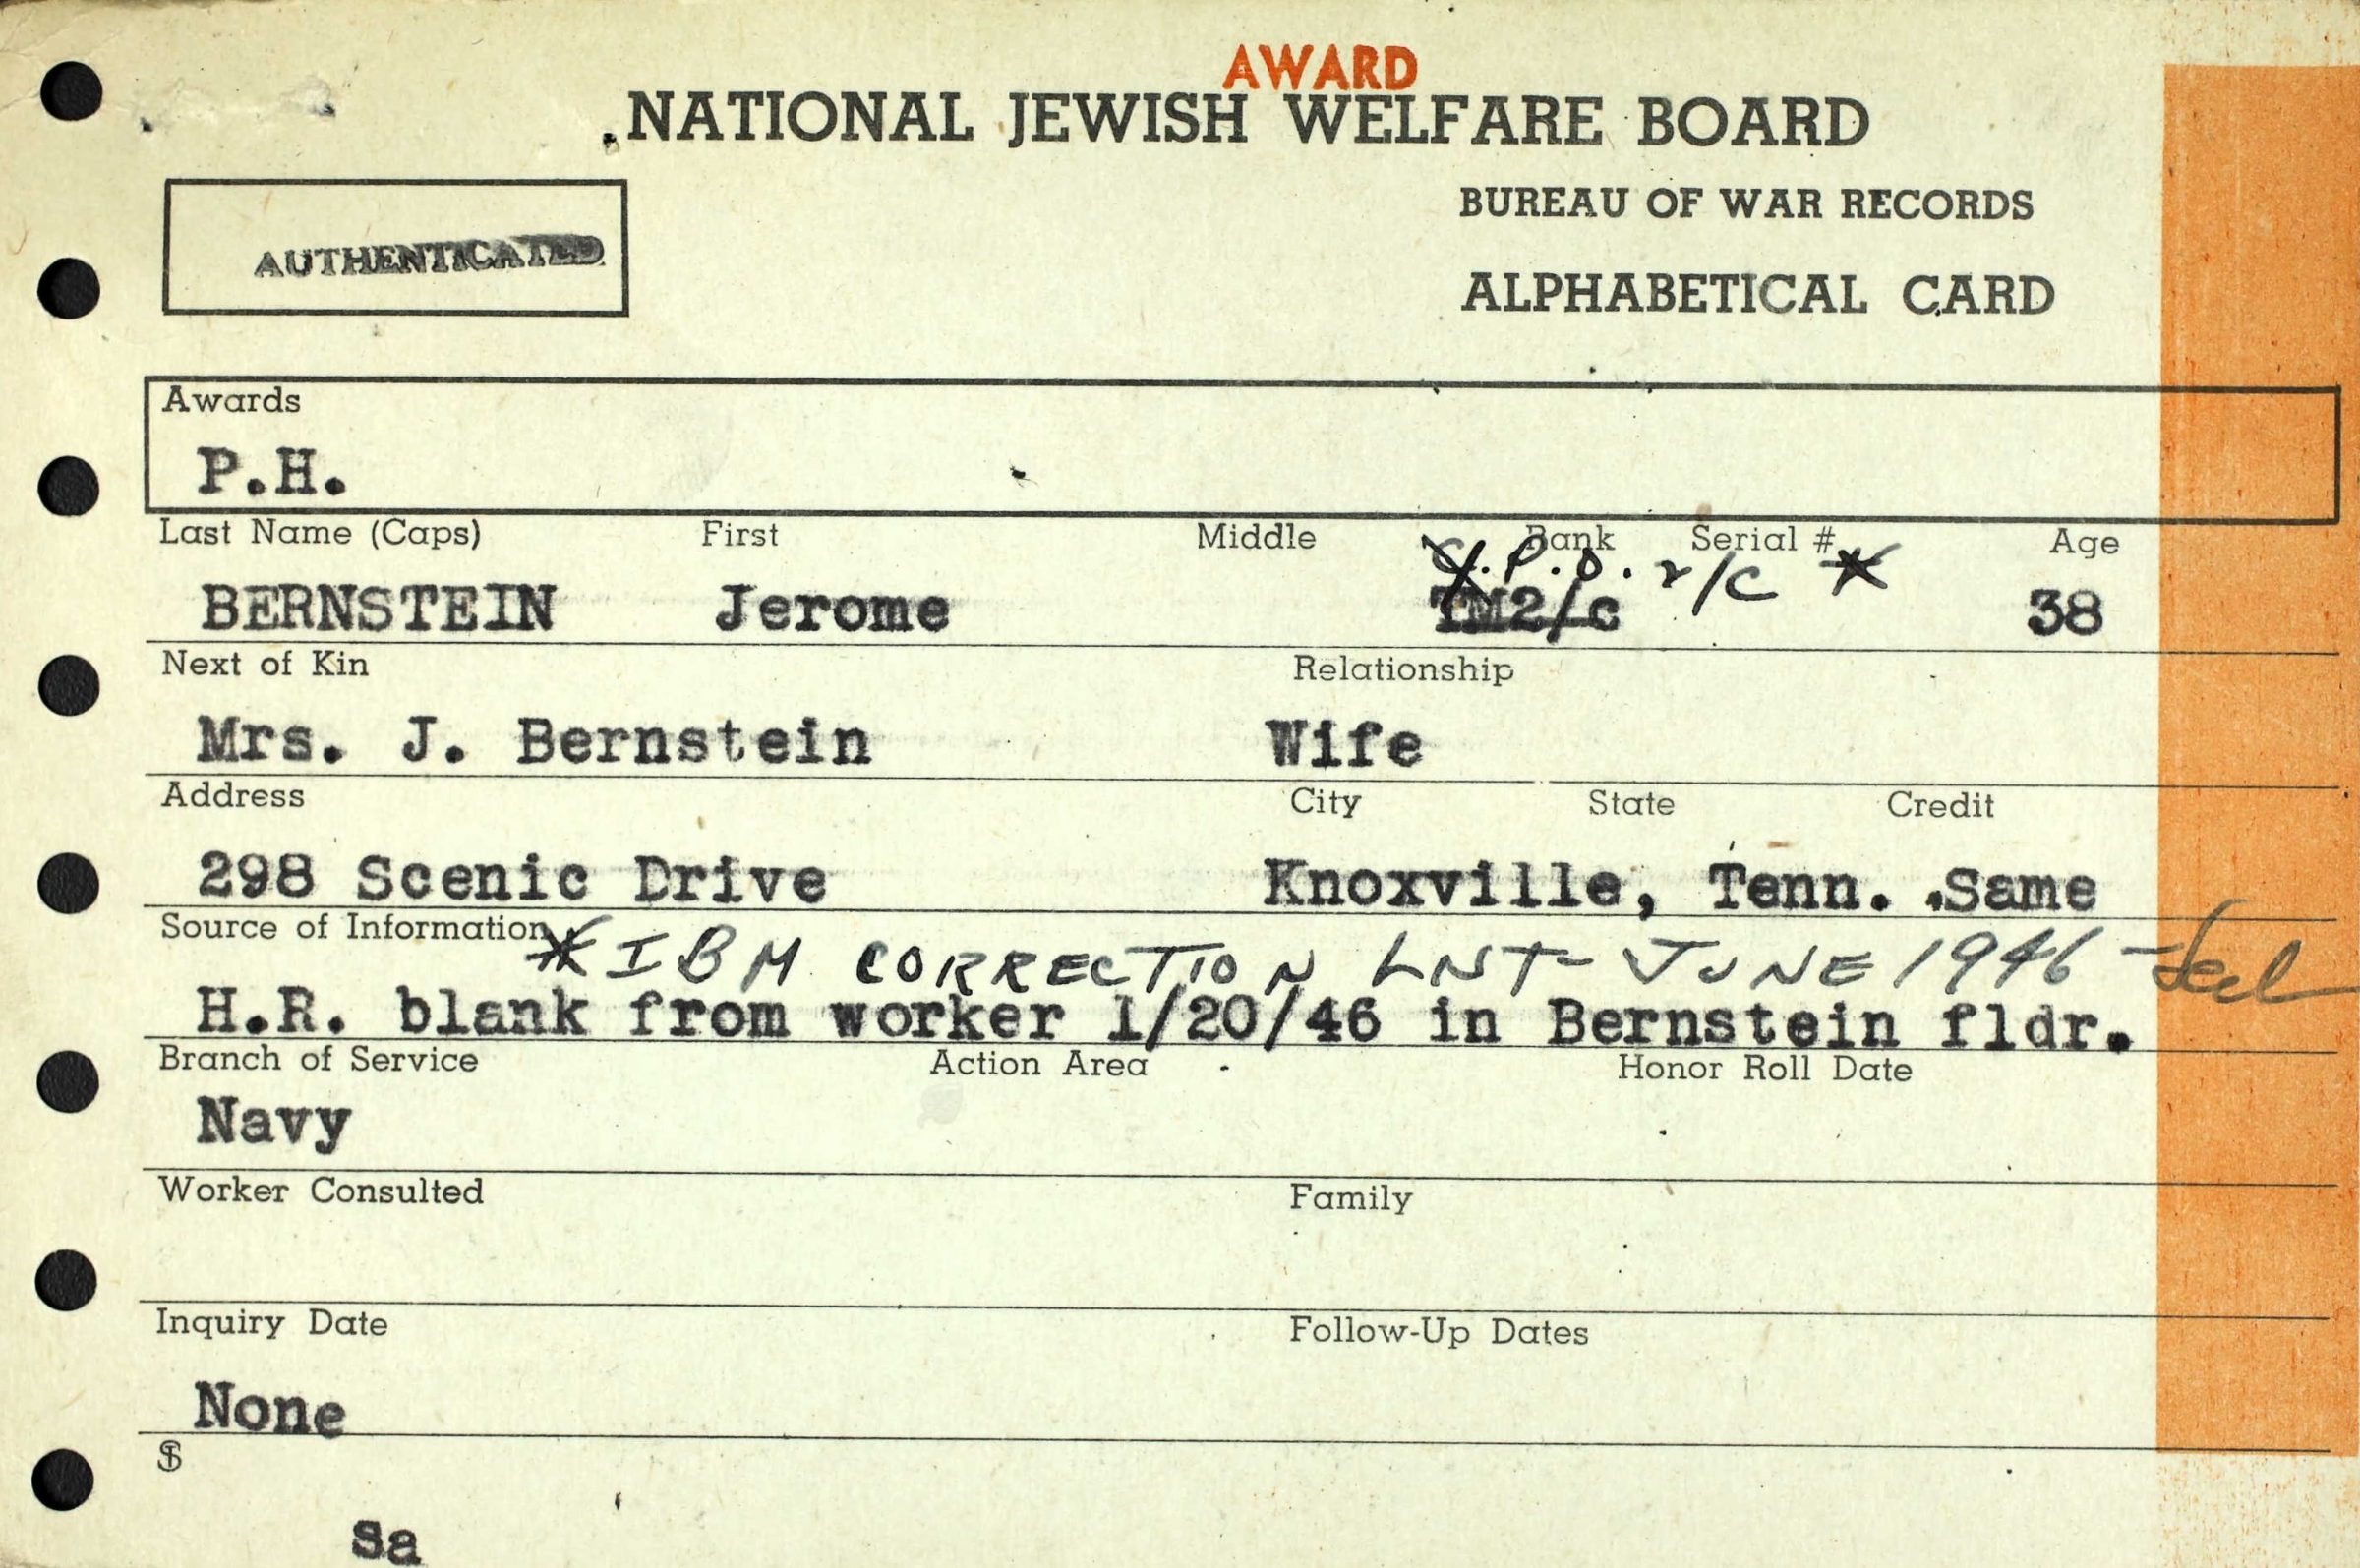 AWARD
NATIONAL JEWISH WELFARE BOARD
BUREAU OF WAR RECORDS
AUTHENTICATED
ALPHABETICAL CARD
Awards
P.H.
Last Name (Caps) First Middle Rank Serial # Age
.P.O. 2/C *
BERNSTEIN Jerome TM2/c 38
Next of Kin Relationship
Mrs. J. Bernstein Wife
Address City State Credit
298 Scenic Drive Knoxville, Tenn. Same
Source of Information
* IBM CORRECTION LIST - JUNE 1946 -
H.R. blank from worker 1/20/46 in Bernstein fldr.
Branch of Service Action Area Honor Roll Date
Navy
Worker Consulted Family
Inquiry Date Follow-Up Dates
None
$
Sa